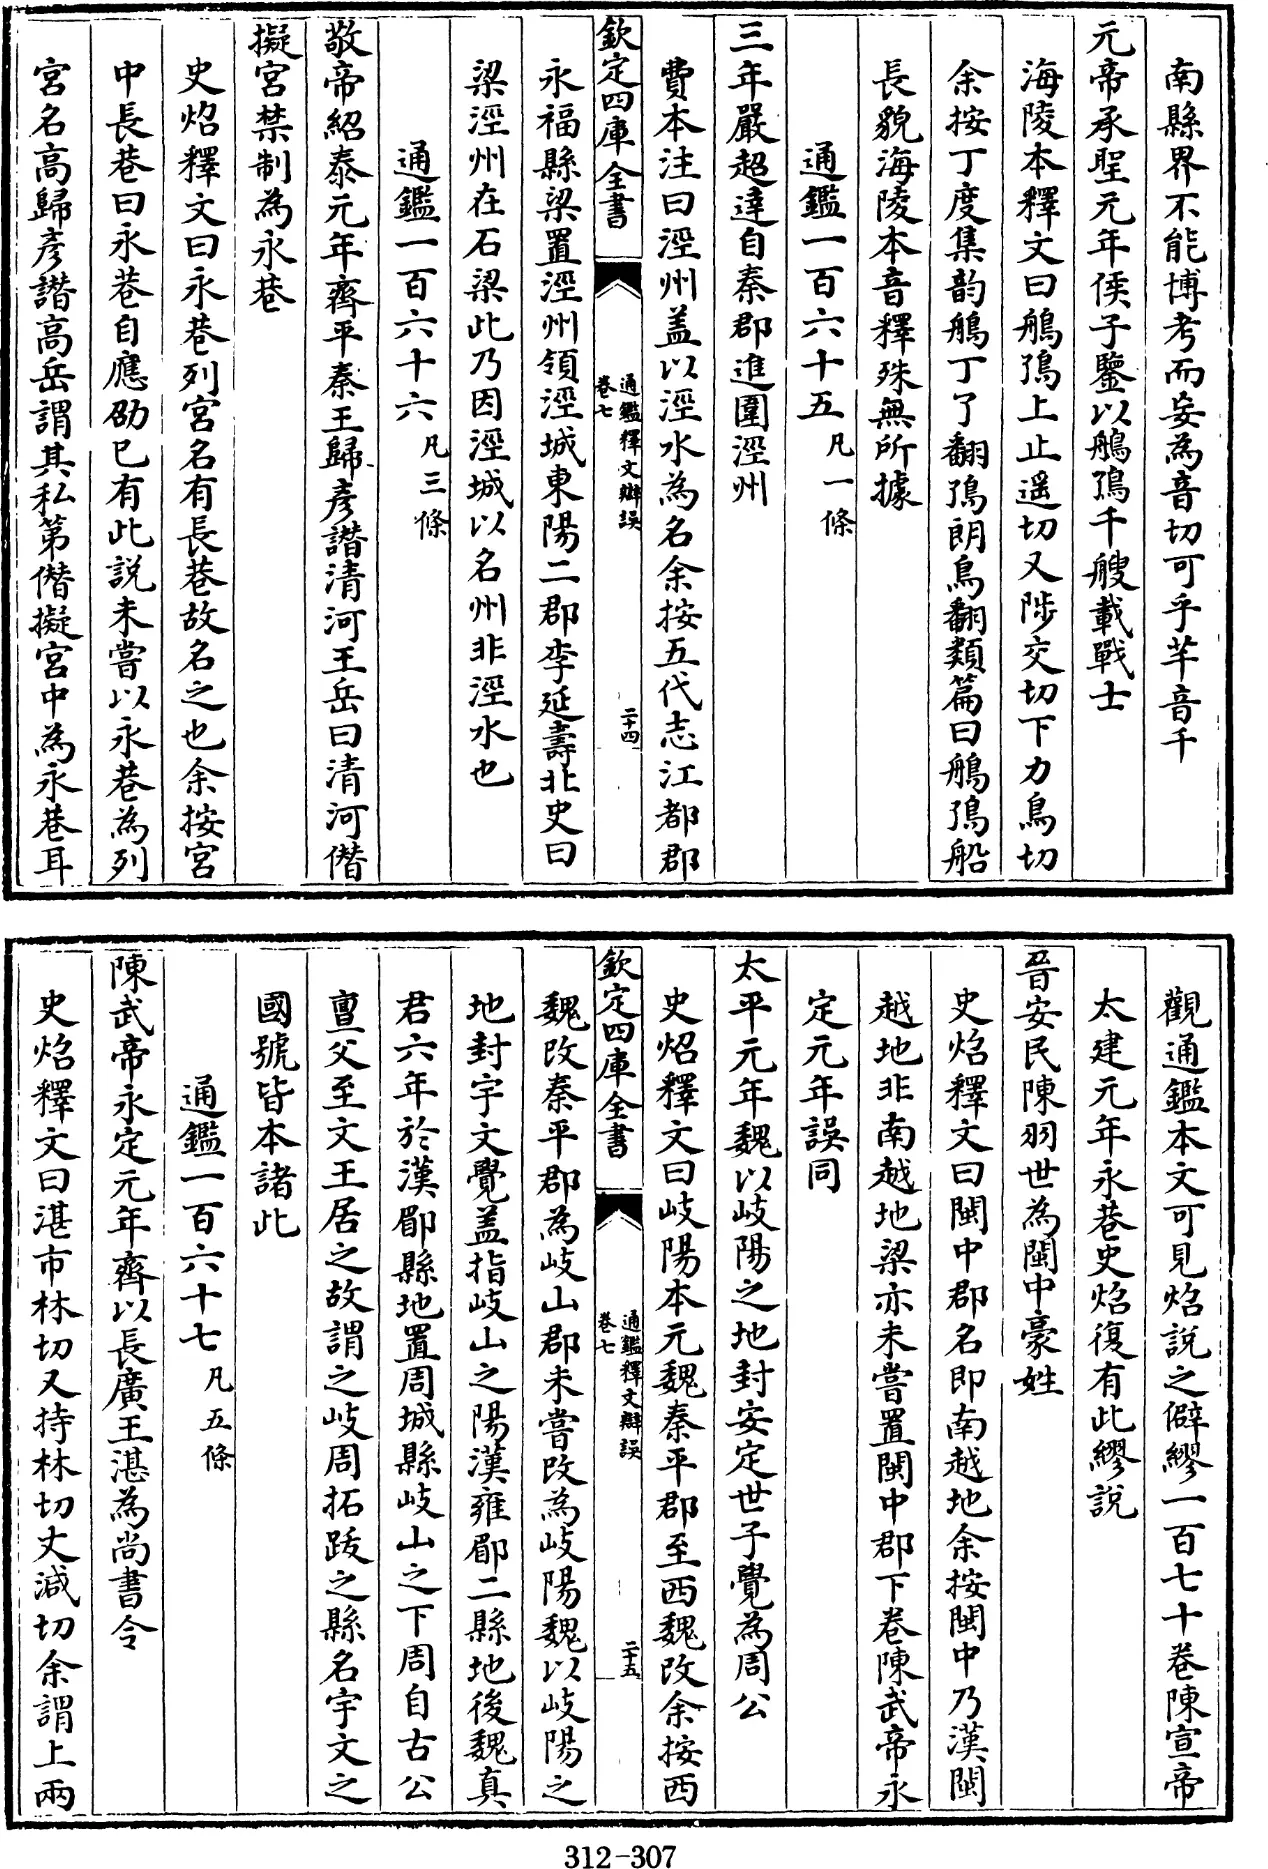 南縣界不能博考而妄為音切可乎芉音千
元帝承聖元年侯子鑒以鵃𦨴千艘載戰士
海陵本釋文曰鵃𦨴上止遥切又陟交切下力鳥切
余按丁度集韵鵃丁了翻𦨴朗鳥翻類篇曰鵃𦨴船
長貌海陵本音釋殊無所據
通鑑一百六十五凡一條
三年嚴超達自秦郡進圍涇州
費本注曰涇州盖以涇水為名余按五代志江都郡
欽定四庫全書
通鑑釋文辯誤
卷七
二十四
永福縣梁置涇州領涇城東陽二郡李延壽北史曰
梁涇州在石梁此乃因涇城以名州非涇水也
通鑑一百六十六凡三條
敬帝紹泰元年齊平秦王歸彦譖清河王岳曰清河僭
擬宫禁制為永巷
史炤釋文曰永巷列宫名有長巷故名之也余按宫
中長巷曰永巷自應劭已有此説未嘗以永巷為列
宫名高歸彦譖高岳謂其私第僭擬宫中為永巷耳
觀通鑑本文可見炤説之僻繆一百七十卷陳宣帝
太建元年永巷史炤復有此繆説
晉安民陳羽世為閩中豪姓
史炤釋文曰閩中郡名即南越地余按閩中乃漢閩
越地非南越地梁亦未嘗置閩中郡下卷陳武帝永
定元年誤同
太平元年魏以岐陽之地封安定世子覺為周公
史炤釋文曰岐陽本元魏秦平郡至西魏改余按西
欽定四庫全書
通鑑釋文辯誤
卷七
二十五
魏改秦平郡為岐山郡未嘗改為岐陽魏以岐陽之
地封宇文覺盖指岐山之陽漢雍郿二縣地後魏真
君六年於漢郿縣地置周城縣岐山之下周自古公
亶父至文王居之故謂之岐周拓跋之縣名宇文之
國號皆本諸此
通鑑一百六十七凡五條
陳武帝永定元年齊以長廣王湛為尚書令
史炤釋文曰湛市林切又持林切丈減切余謂上兩
312-307